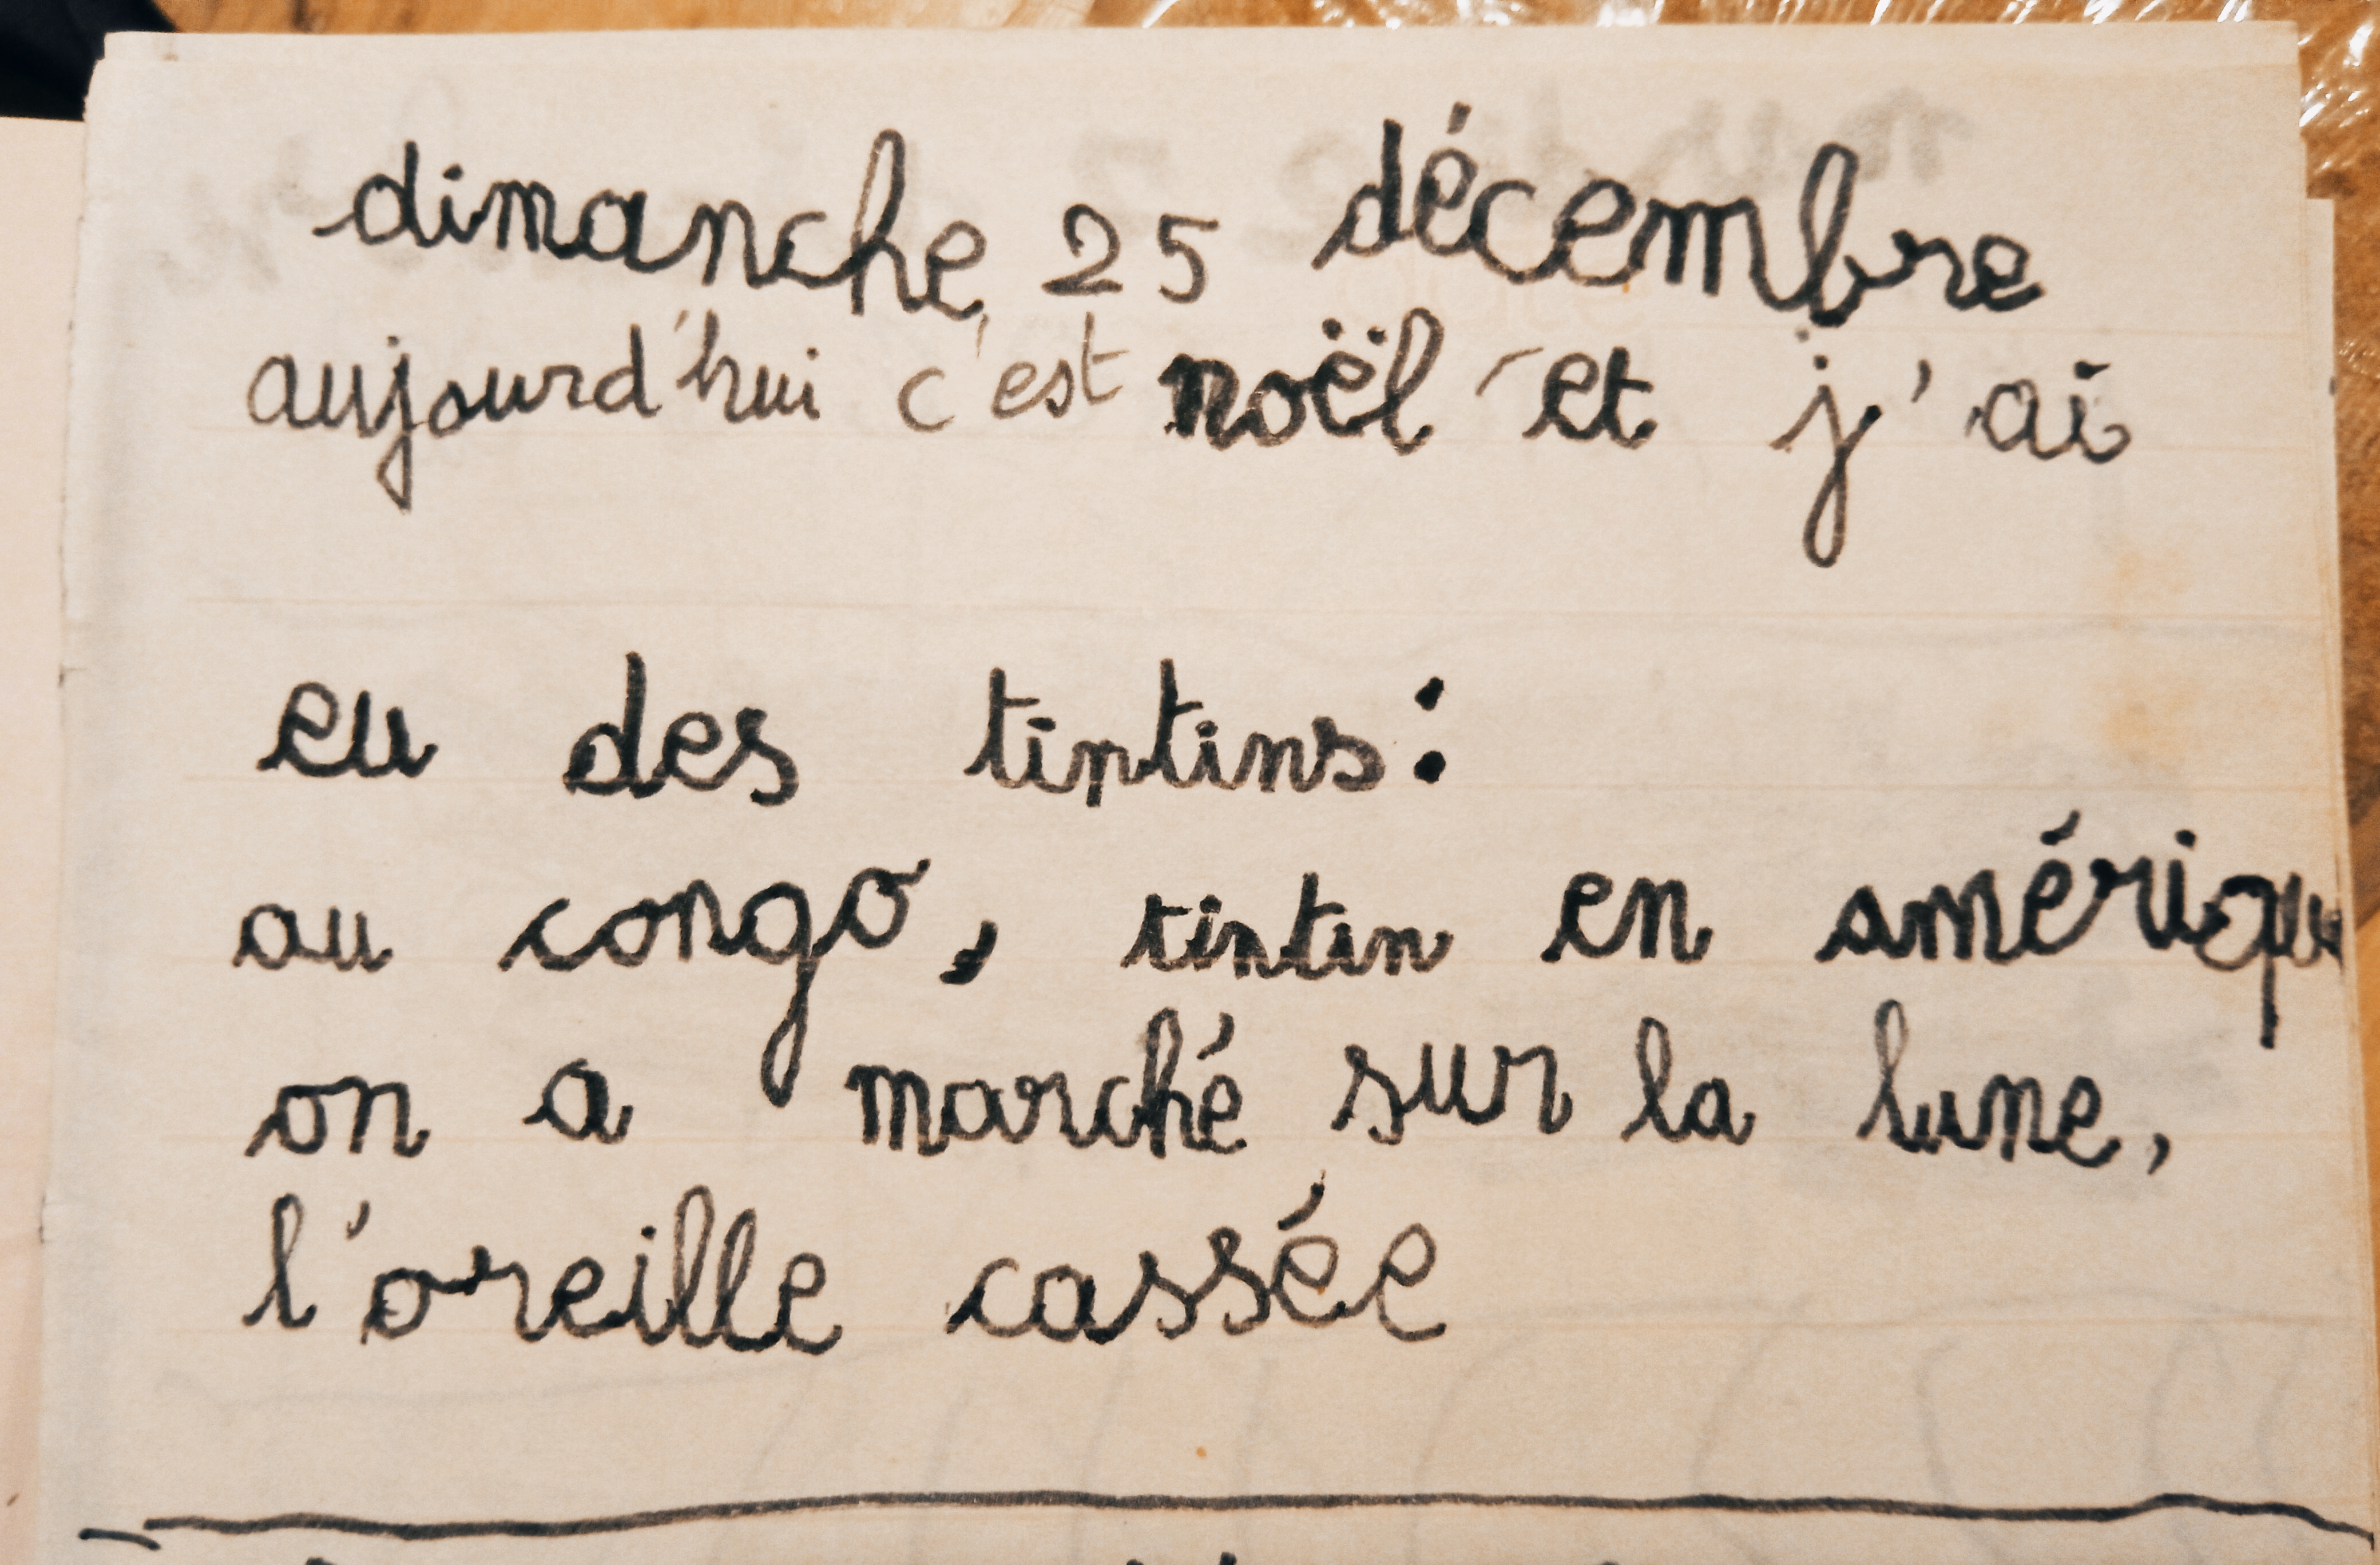 dimanche 25 décembre
aujourd'hui c'est noël et j'ai
eu des tintins:
au congo, tintin en amérique
on a marché sur la lune,
l'oreille cassée